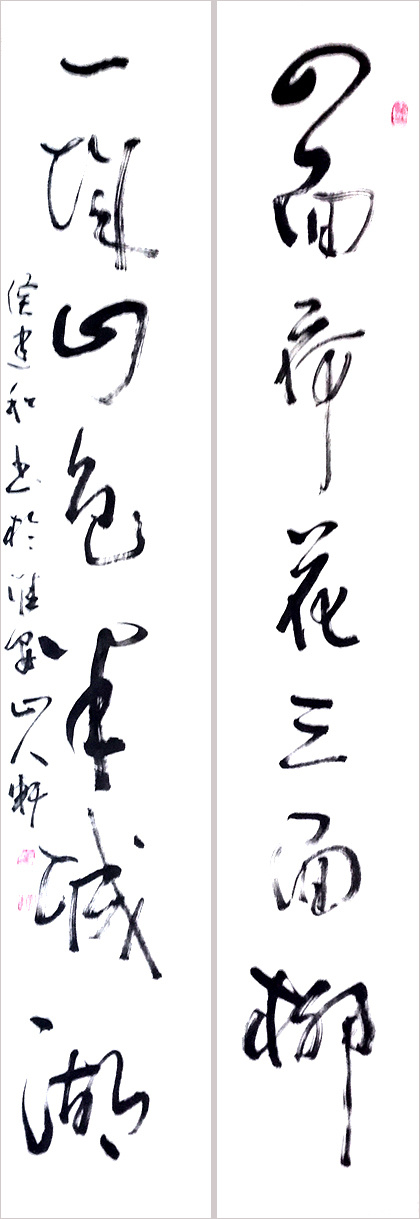 四面荷花三面柳
一城山色半城湖
侯建和书於淮山人轩